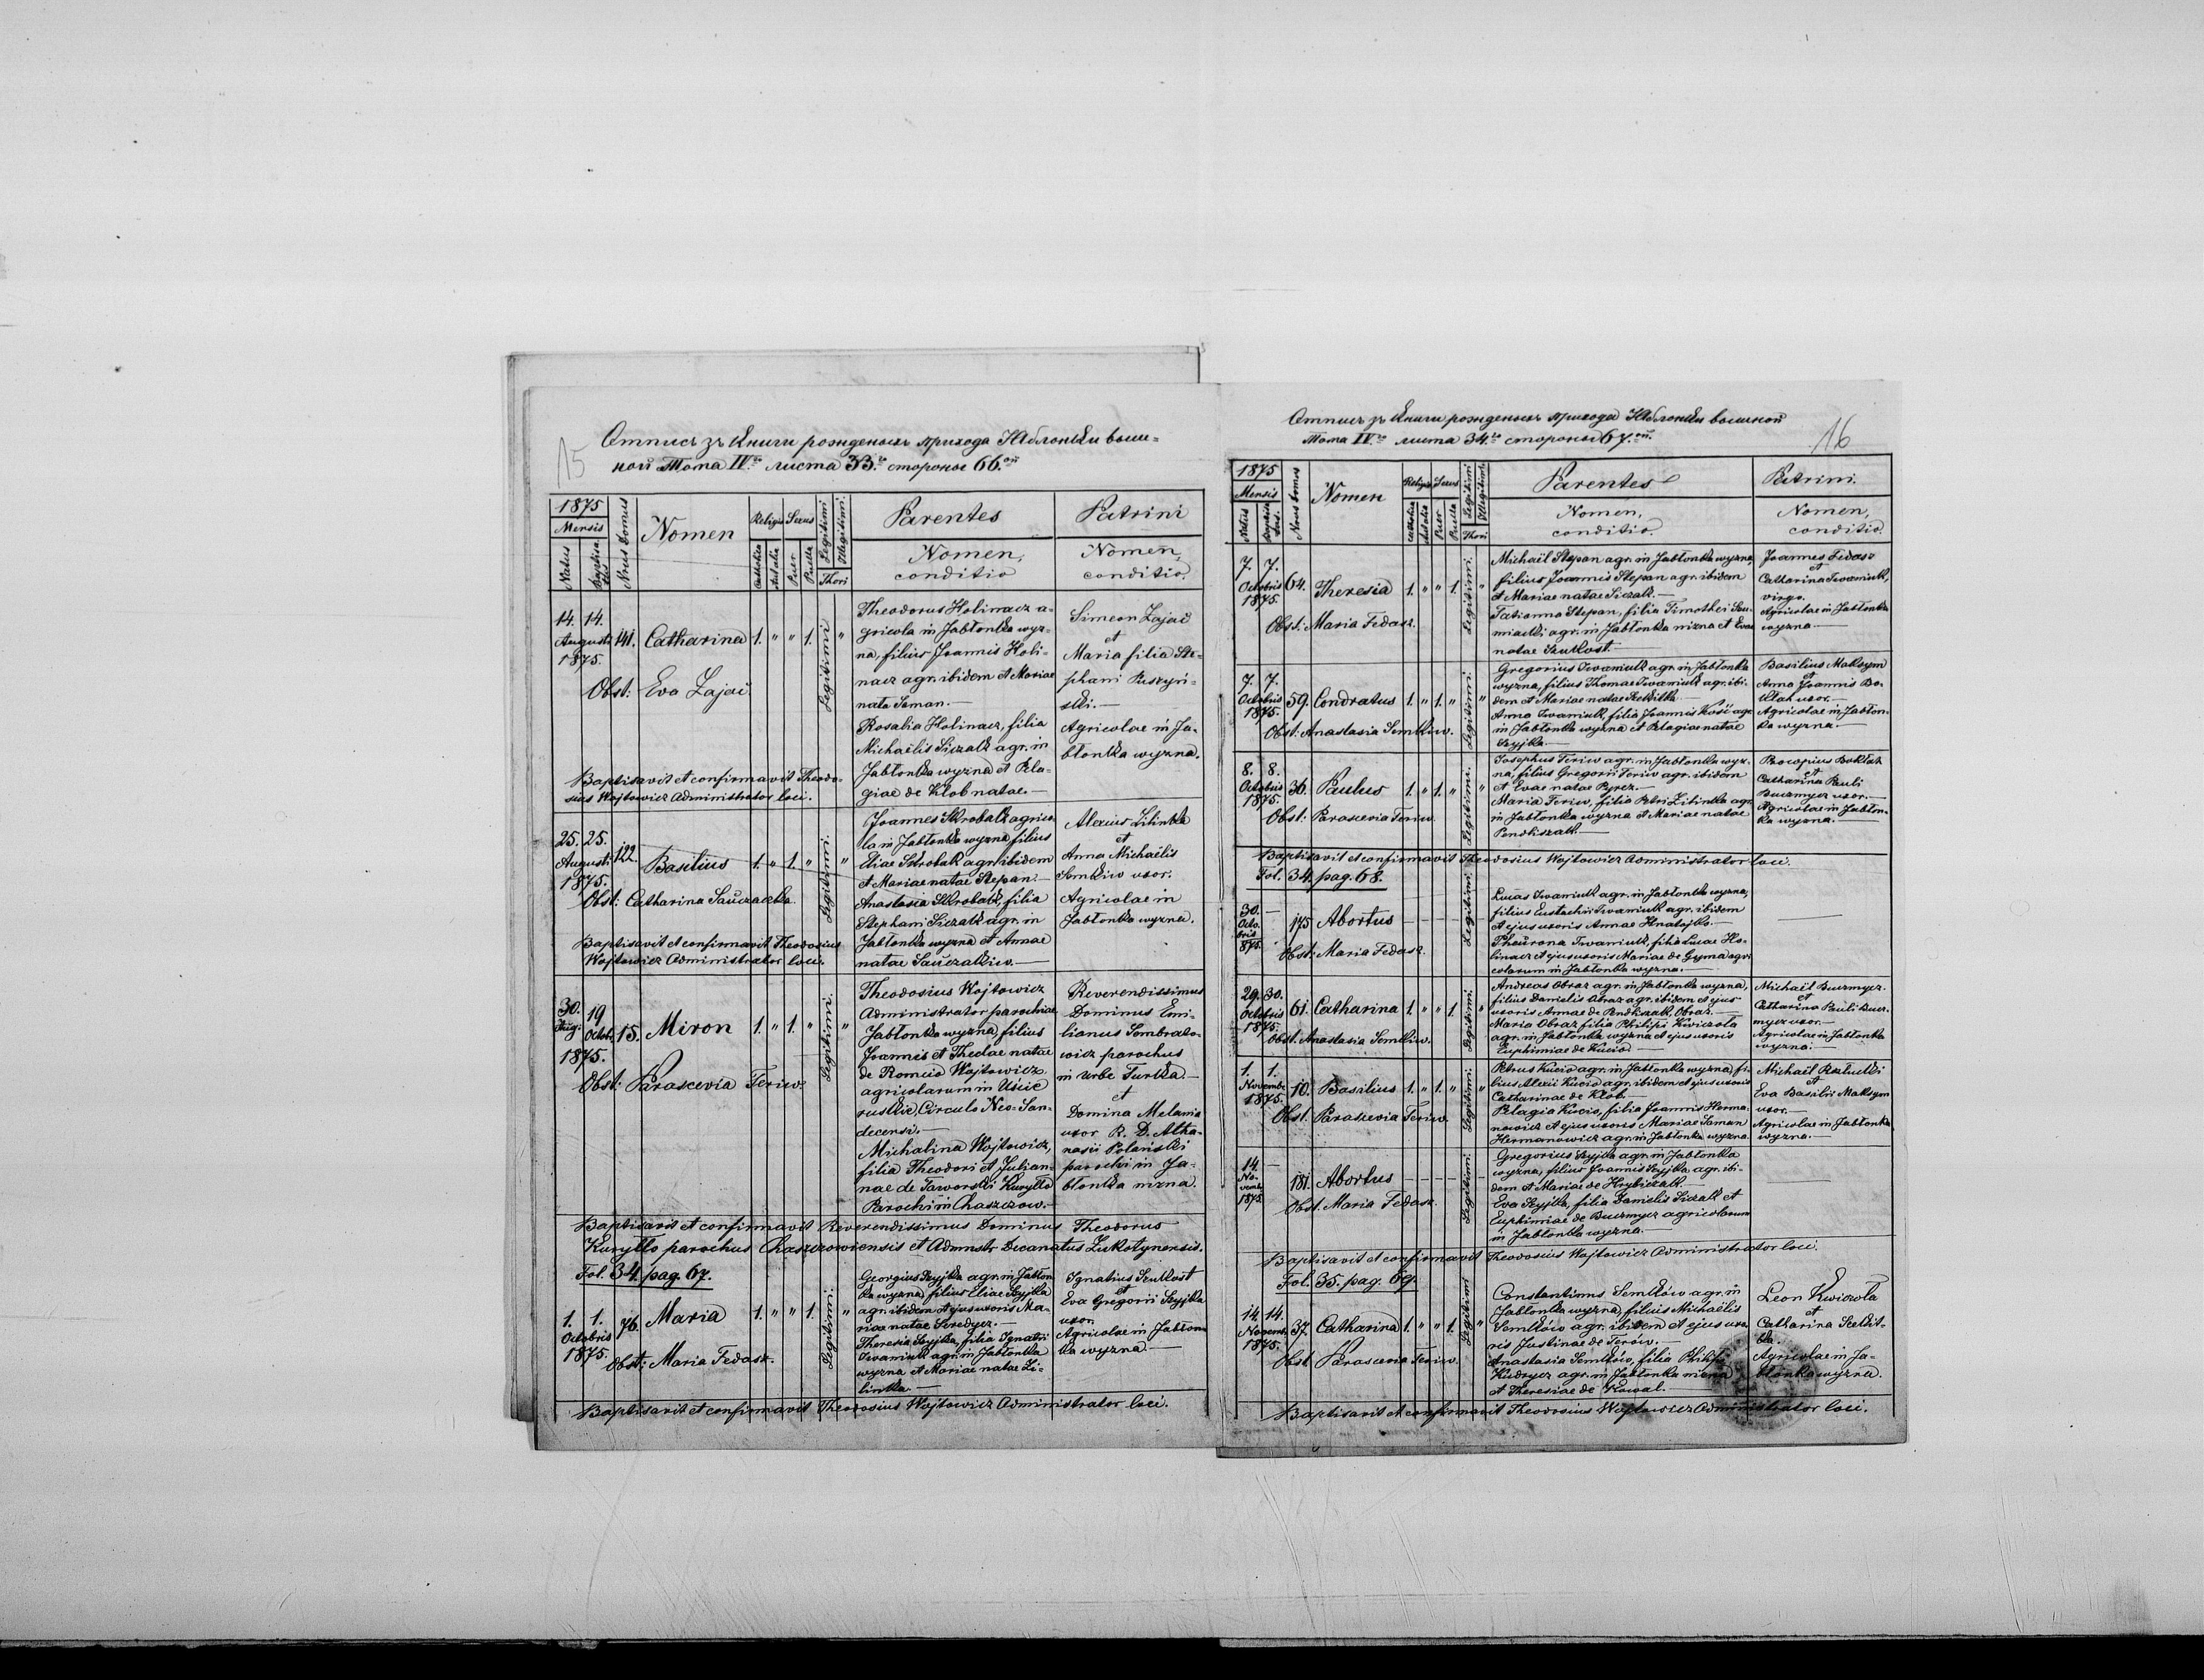 15
Отпись зъ Книги рожденыхъ прихода Яблонки выш=
ной Тома IV.го листа 33.го стороны 66.ой
1875
Mensis
Natus
Baptisatus
Nrus domus
Nomen
Religio
Catholica
Aut alia
Sexus
Puer
Puella
Legitimi
Illegitimi
Thori
Parentes
Nomen,
conditio
Patrini
Nomen,
conditio.
14. 14.
Augusti
1875.
141. Catharina 1. " " 1. Legitimi "
Obst: Eva Zajać
Theodorus Holinacz a-
gricola in Jabłonka wyz-
na, filius Joannis Holi-
nacz agr. ibidem et Mariae
nata Saman.—
Rosalia Holinacz, filia
Michaëlis Siczak agr. in
Jabłonka wyzna et Pela-
giae de Klob natae.—
Simeon Zajać
et
Maria filia Ste-
phani Puszyń-
ski.—
Agricolae in Ja-
błonka wyzna.
Baptisavit et confirmavit Theodo-
sius Wojtowicz Administrator loci.
25. 25.
Augusti
1875.
122. Basilius 1. " 1. " Legitimi. "
Obst: Catharina Saŭczaczka
Joannes Skrobak agrico-
la in Jabłonka wyzna filius
Eliae Skrobak agr. ibidem
et Mariae natae Stepan.
Anastasia Skrobak, filia
Stephani Siczak agr. in
Jabłonka wyzna et Annae
natae Saŭczakiw.—
Alexius Zilinka
et
Anna Michaëlis
Semkiw uxor.
Agricolae in
Jabłonka wyzna.
Baptisavit et confirmavit Theodosius
Wojtowicz Administrator loci.
30. 19
Aug: Octobr.
1875.
15. Miron 1. " 1. " Legitimi. "
Obst: Parascevia Teriw
Theodosius Wojtowicz
Administrator parochiae
Jabłonka wyzna, filius
Joannis et Theclae natae
de Romcio Wojtowicz
agricolarum in Uście
ruskie, Circulo Neo-San-
decensi.—
Michalina Wojtowicz,
filia Theodori et Julian-
nae de Jaworski Kuryłło
Parochi in Chaszczow.—
Reverendissimus
Dominus Emi-
lianus Sembrato-
wicz parochus
in Urbe Turka.—
et
Domina Melania
uxor R. D. Atha-
nasii Polański
parochi in Ja-
błonka nizna.
Baptisavit et confirmavit Reverendissimus Dominus Theodorus
Kuryłło parochus Chaszczowiensis et Admnstr Decanatus Zukotynensis.
Fol. 34. pag. 67.
1. 1.
Octobris
1875.
76. Maria 1. " " 1. Legitimi: "
Obst: Maria Fedasz.
Georgius Szyjka agr. in Jabłon-
ka wyzna, filius Eliae Szyjka
agr. ibidem et ejus uxoris Ma-
riae natae Seredycz.—
Theresia Szyjka, filia Ignatii
Iwaniuk agr. in Jabłonka
wyzna et Mariae natae Zi-
linka.—
Ignatius Szulkost
et
Eva Gregorii Szyjka
uxor.
Agricolae in Jabłon-
ka wyzna.—
Baptisavit et confirmavit Theodosius Wojtowicz Administrator loci.
16
Отпись зъ Книги рожденыхъ прихода Яблонки вышной
Тома IV.го листа 34.го стороны 67.ой
1875
Mensis
Natus
Baptisatus
Nrus domus
Nomen
Religio
Catholica
Aut alia
Sexus
Puer
Puella
Legitimi
Illegitimi
Thori
Parentes
Nomen,
conditio.
Patrini.
Nomen,
conditio.
7. 7.
Octobris
1875.
64. Theresia 1. " " 1. Legitimi. "
Obst: Maria Fedasz.
Michaël Stepan agr. in Jabłonka wyzna,
filius Joannis Stepan agr. ibidem
et Mariae natae Siczak.—
Tatianna Stepan, filia Timothei Sau-
miacki agr. in Jabłonka nizna et Evae
natae Szulkost.—
Joannes Fedasz
et
Catharina Iwaniuk,
virgo.
Agricolae in Jabłonka
wyzna.—
7. 7.
Octobris
1875.
59. Condratus 1. " 1. " Legitimi. "
Obst: Anastasia Semkiw.
Gregorius Iwaniuk agr. in Jabłonka
wyzna, filius Thomae Iwaniuk agr. ibi-
dem et Mariae natae Sekitka.—
Anna Iwaniuk, filia Joannis Kość agr.
in Jabłonka wyzna et Pelagiae natae
Szyjka.—
Basilius Maksym
et
Anna Joannis Bo-
kłak uxor.—
Agricolae in Jabłon-
ka wyzna.—
8. 8.
Octobris
1875.
36. Paulus 1. " 1. " Legitimi. "
Obst: Parascevia Teriw.
Josephus Teriw agr. in Jabłonka wyz-
na, filius Gregorii Teriw agr. ibidem
et Evae natae Pyrcz.—
Maria Teriw, filia Petri Zilinka agr.
in Jabłonka wyzna et Mariae natae
Pendziszak.—
Procopius Bokłak
et
Catharina Pauli
Buczmycz uxor.—
Agricolae in Jabłon-
ka wyzna.—
Baptisavit et confirmavit Theodosius Wojtowicz Administrator loci.
Fol. 34. pag. 68.
30. —
Octo-
bris
875.
175 Abortus — — — — Legitimi. —
Obst: Maria Fedasz.
Lucas Iwaniuk agr. in Jabłonka wyzna,
filius Eustachii Iwaniuk agr. ibidem
et ejus uxoris Annae Hnatejko.
Pheŭrona Iwaniuk, filia Lucae Ho-
linacz et ejus uxoris Mariae de Gyma agri-
colarum in Jabłonka wyzna.—
29. 30.
Octobris
1875.
61. Catharina 1. " " 1. Legitimi. "
Obst. Anastasia Semkiw.
Andreas Obraz agr. in Jabłonka wyzna,
filius Danielis Obraz agr. ibidem et ejus
uxoris Annae de Pendziszak, Obraz.—
Maria Obraz, filia Philippi Kwiczoła
agr. in Jabłonka wyzna et ejus uxoris
Euphimiae de Kucio.—
Michaël Buczmycz.
et
Catharina Pauli Bucz-
mycz uxor.—
Agricolae in Jabłonka
wyzna.—
1. 1.
Novembr.
1875.
10. Basilius 1. " 1. " Legitimi. "
Obst. Parascevia Teriw.
Petrus Kucio agr. in Jabłonka wyzna, fi-
lius Alexii Kucio agr. ibidem et ejus uxoris
Catharinae de Klob.—
Pelagia Kucio, filia Joannis Herma-
nowicz et ejus uxoris Mariae Saman
Hermanowicz agr. in Jabłonka wyzna.
Michaël
et
Eva Basilii Maksym
uxor.—
Agricolae in Jabłonka
wyzna.—
14. —
No-
vemb.
1875
181. Abortus — — — — Legitimi.
Obst. Maria Fedasz.
Gregorius Szyjka agr. in Jabłonka
wyzna, filius Joannis Szyjka agr. ibi-
dem et Mariae de Hrybiczak.—
Eva Szyjka, filia Danielis Siczak et
Euphimiae de Buczmycz agricolarum
in Jabłonka wyzna.—
Baptisavit et confirmavit Theodosius Wojtowicz Administrator loci.
Fol. 35. pag. 69.
14. 14.
Novemb.
1875.
37. Catharina 1. " " 1. Legitimi "
Obst. Parascevia Teriw.
Constantinus Semków agr. in
Jabłonka wyzna, filius Michaëlis
Semków agr. ibidem et ejus uxo-
ris Justinae de Terów.—
Anastasia Semków, filia Philippi
Kudrycz agr. in Jabłonka nizna
et Theresiae de Kowal.—
Leon Kwiczoła
et
Catharina Sekit-
ka.
Agricolae in Ja-
błonka wyzna.
Baptisavit et confirmavit Theodosius Wojtowicz Administrator loci.